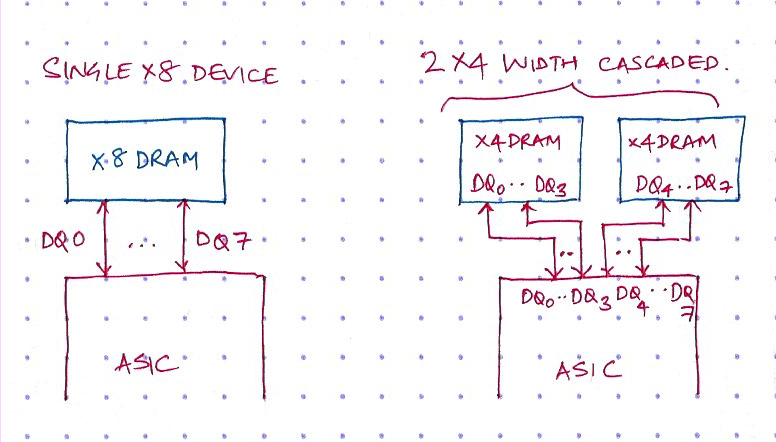 SINGLE X8 DEVICE
X8 DRAM
DQ0 ... DQ7
ASIC
2 X4 WIDTH CASCADED.
X4DRAM
DQ0.. DQ3
X4DRAM
DQ4..DQ7
.. ..
DQ0..DQ3 DQ4 ..DQ7
ASIC